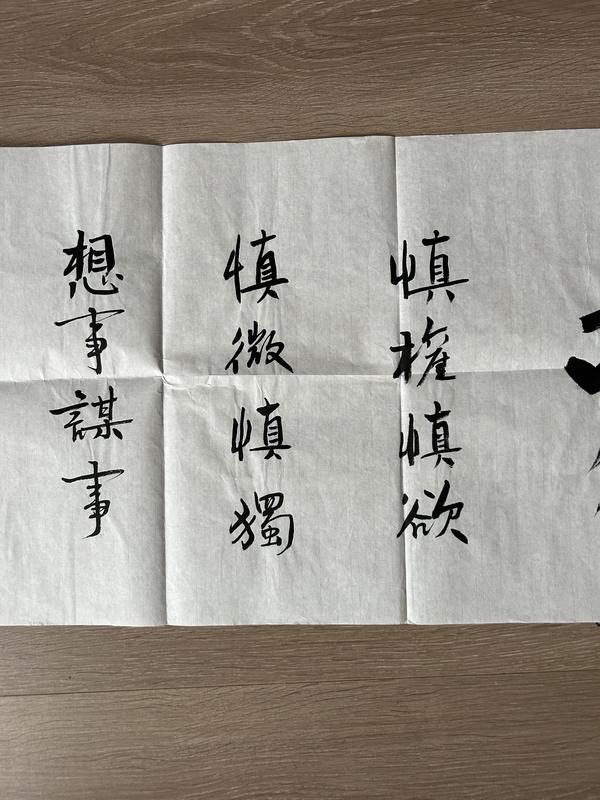 慎權慎欲
慎微慎獨
想事謀事